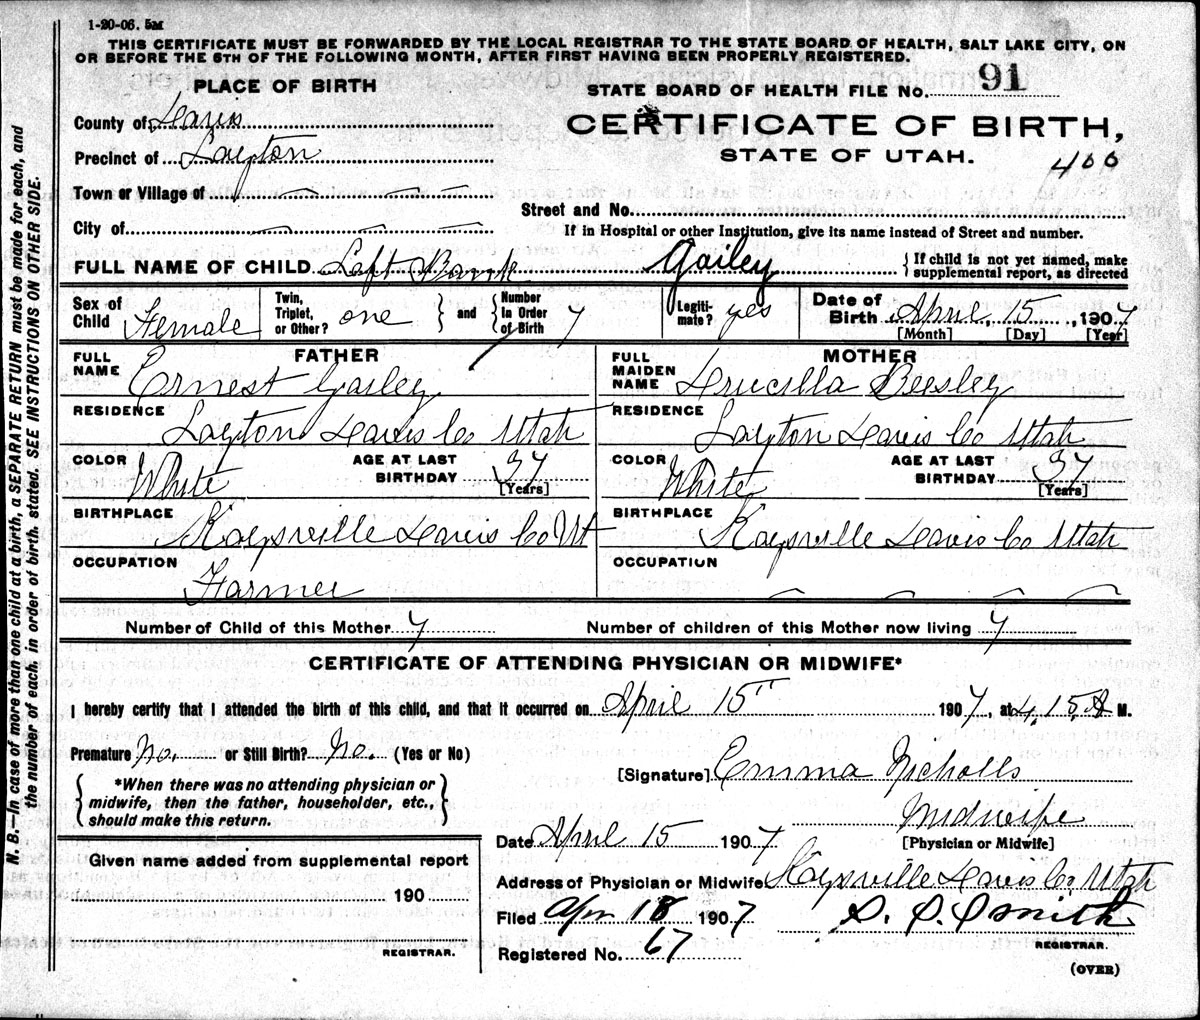 1-20-06. 5M
THIS CERTIFICATE MUST BE FORWARDED BY THE LOCAL REGISTRAR TO THE STATE BOARD OF HEALTH, SALT LAKE CITY, ON
OR BEFORE THE 5TH OF THE FOLLOWING MONTH, AFTER FIRST HAVING BEEN PROPERLY REGISTERED.
PLACE OF BIRTH
STATE BOARD OF HEALTH FILE NO. 91
County of Davis
CERTIFICATE OF BIRTH,
Precinct of Layton
STATE OF UTAH.
400
Town or Village of
Street and No.
City of
If in Hospital or other Institution, give its name instead of Street and number.
FULL NAME OF CHILD Left Blank Gailey { If child is not yet named, make supplemental report, as directed
Sex of Child Female
Twin, Triplet, or Other? one } and { Number In Order of Birth 7
Legitimate? yes
Date of Birth April 15, 1907
[Month] [Day] [Year]
FATHER
FULL NAME Ernest Gailey
MOTHER
FULL MAIDEN NAME Drucilla Beesley
RESIDENCE Layton Davis Co Utah
RESIDENCE Layton Davis Co Utah
COLOR White AGE AT LAST BIRTHDAY 37 [Years]
COLOR White AGE AT LAST BIRTHDAY 37 [Years]
BIRTHPLACE Kaysville Davis Co Ut
BIRTHPLACE Kaysville Davis Co Utah
OCCUPATION Farmer
OCCUPATION
Number of Child of this Mother 7 Number of children of this Mother now living 7
CERTIFICATE OF ATTENDING PHYSICIAN OR MIDWIFE*
I hereby certify that I attended the birth of this child, and that it occurred on April 15" 1907, at 4.15 A M.
Premature No. or Still Birth? No. (Yes or No)
[Signature] Emma Nicholls
{ *When there was no attending physician or midwife, then the father, householder, etc., should make this return. }
Midwife
Date April 15 1907 [Physician or Midwife]
Given name added from supplemental report
190
Address of Physician or Midwife Kaysville Davis Co. Utah
Filed Apr 18 1907 S. S. Smith
REGISTRAR.
REGISTRAR.
Registered No. 67
(OVER)
N. B.—In case of more than one child at a birth, a SEPARATE RETURN must be made for each, and
the number of each, in order of birth, stated. SEE INSTRUCTIONS ON OTHER SIDE.